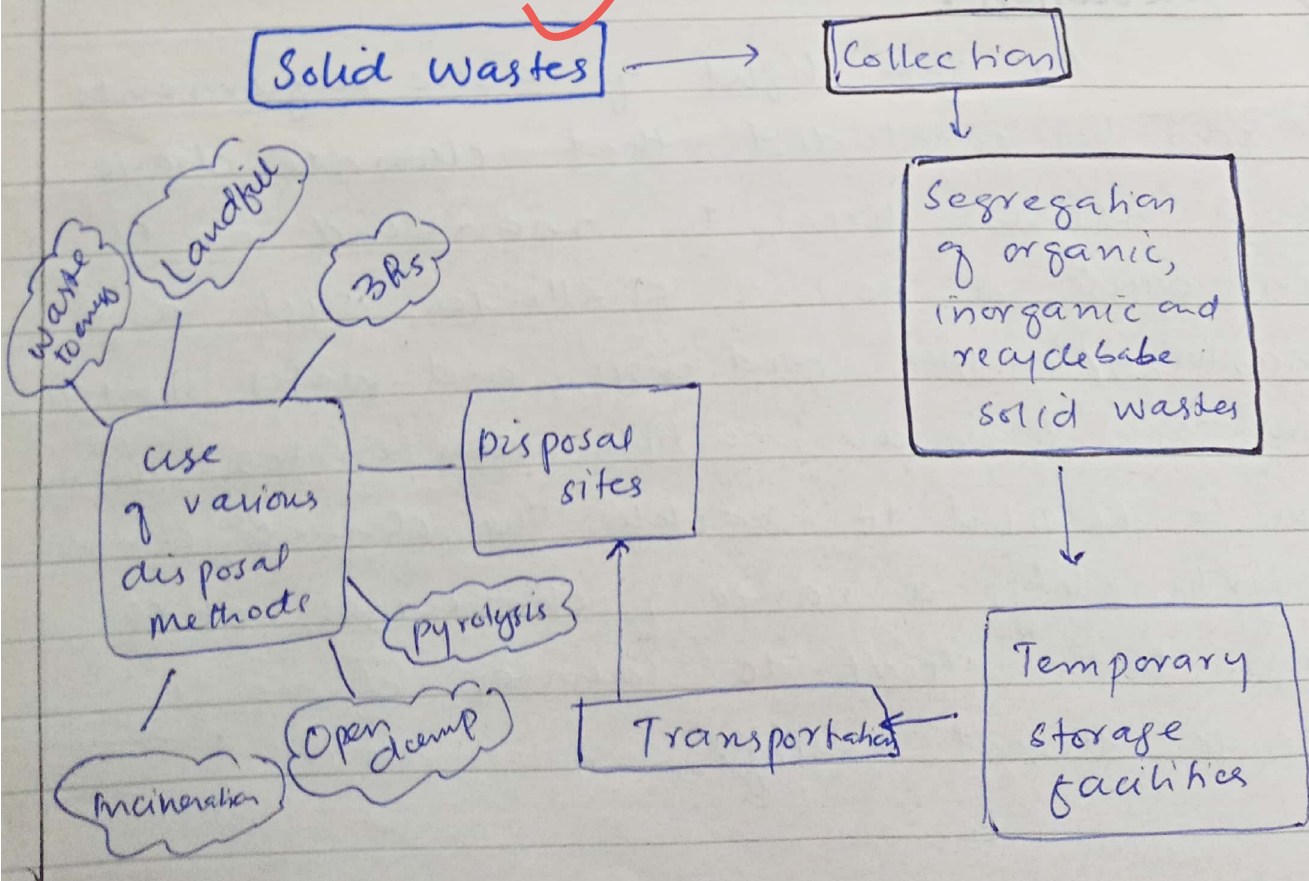 Solid Wastes
Collection
Segregation
of organic,
inorganic and
recyclebabe
solid wastes
Temporary
storage
facilities
Transportation
Disposal
sites
use
of various
disposal
methods
Waste
to energy
Landfill
3Rs
pyrolysis
Open
dump
incineration